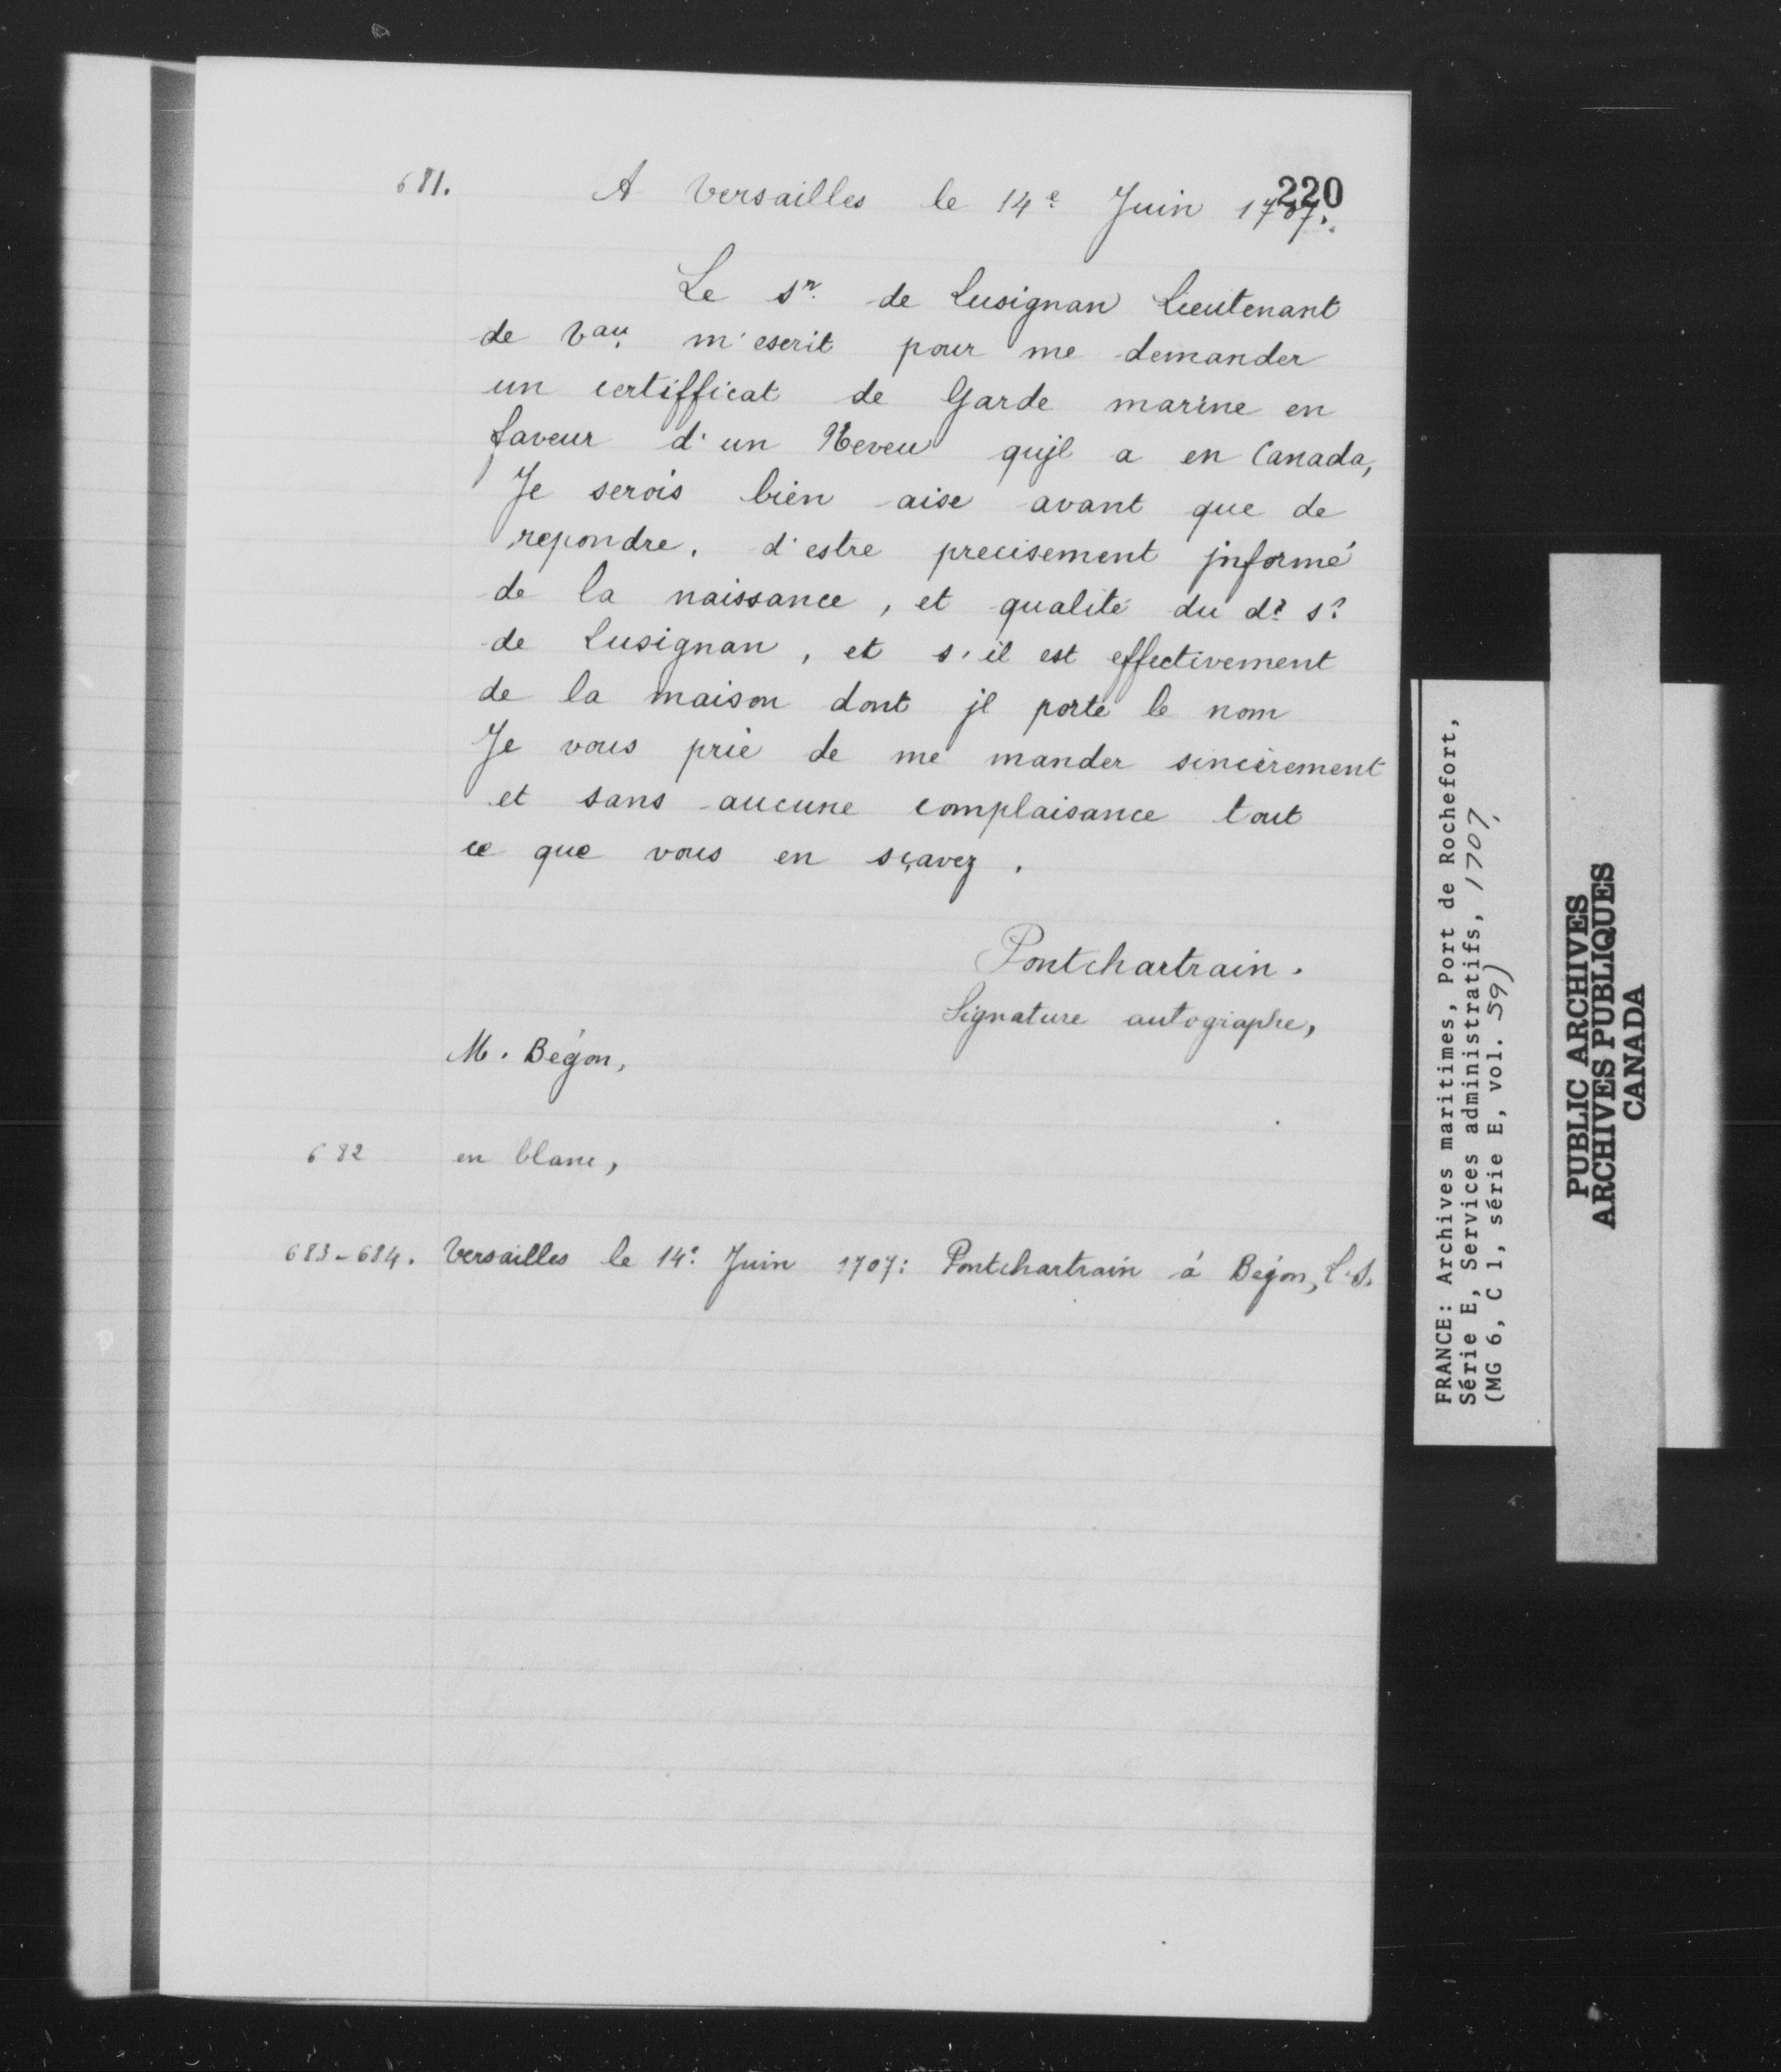 220
681. A Versailles le 14e Juin 1707.
Le sr. de Lusignan Lieutenant
de Vau. m'escrit pour me demander
un certifficat de Garde marine en
faveur d'un Neveu qujl a en Canada,
Je serois bien aise avant que de
repondre, d'estre precisement jnformé
de la naissance, et qualité du dt. sr.
de Lusignan, et s'il est effectivement
de la maison dont jl porte le nom
Je vous prie de me mander sincèrement
et sans aucune complaisance tout
ce que vous en sçavez.
Pontchartrain.
Signature autographe,
M. Bégon,
682 en blanc,
683-684. Versailles le 14e. Juin 1707: Pontchartrain à Bégon, L.S.
FRANCE: Archives maritimes, Port de Rochefort,
Série E, Services administratifs, 1707,
(MG 6, C 1, série E, vol. 59)
PUBLIC ARCHIVES
ARCHIVES PUBLIQUES
CANADA